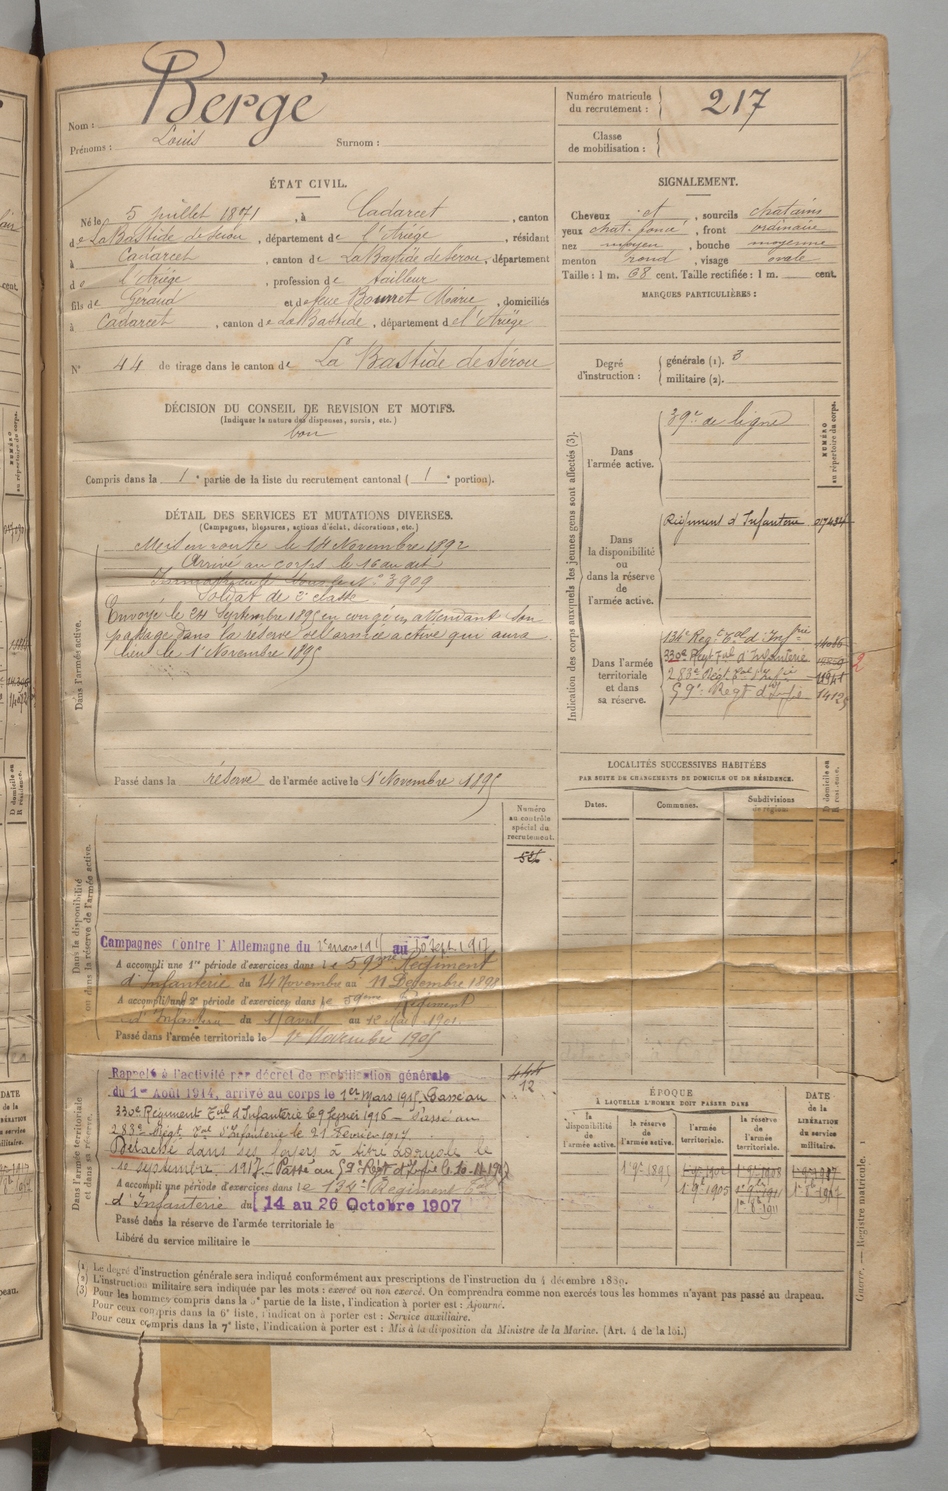 Nom : Bergé
Prénoms : Louis Surnom :
Numéro matricule du recrutement : 217
Classe de mobilisation :
ÉTAT CIVIL.
Né le 5 juillet 1871, à Cadarcet, canton
de La Bastide de Sérou, département de l'Ariége, résidant
à Cadarcet, canton de La Bastide de Serou, département
de l'Ariége, profession de tailleur
fils de Géraud et de feue Bourret Marie, domiciliés
à Cadarcet, canton de La Bastide, département de l'Ariége
N° 44 de tirage dans le canton de La Bastide de Sérou
SIGNALEMENT.
Cheveux et, sourcils chatains
yeux chat. foncé, front ordinaire
nez moyen, bouche moyenne
menton rond, visage ovale
Taille : 1 m. 68 cent. Taille rectifiée : 1 m. cent.
MARQUES PARTICULIÈRES :
Degré d'instruction : générale (1). 3
militaire (2).
DÉCISION DU CONSEIL DE REVISION ET MOTIFS.
(Indiquer la nature des dispenses, sursis, etc.)
bon
Compris dans la 1e partie de la liste du recrutement cantonal (1e portion).
DÉTAIL DES SERVICES ET MUTATIONS DIVERSES.
(Campagnes, blessures, actions d'éclat, décorations, etc.)
Dans l'armée active.
Mis en route le 14 Novembre 1892
Arrivé au corps le 16 du dit
3909
Soldat de 2e classe
Envoyé le 24 Septembre 1895 en congé en attendant son
passage dans la réserve de l'armée active qui aura
lieu le 1r Novembre 1895
Passé dans la réserve de l'armée active le 1r Novembre 1895
Indication des corps auxquels les jeunes gens sont affectés (3).
NUMÉRO au répertoire du corps.
Dans l'armée active. 59e de ligne
Dans la disponibilité ou dans la réserve de l'armée active. Régiment d'Infanterie 017484
Dans l'armée territoriale et dans sa réserve.
134e Régt Tal d'Infrie
330e Régt Tal d'Infanterie
283e Régt Tal d'Infie
59e Régt d'Infie
LOCALITÉS SUCCESSIVES HABITÉES
PAR SUITE DE CHANGEMENTS DE DOMICILE OU DE RÉSIDENCE.
Dates. Communes. Subdivisions de région. D domicile ou R résidence.
Numéro au contrôle spécial du recrutement.
Dans la disponibilité ou dans la réserve de l'armée active.
Campagnes Contre l'Allemagne du 1er mars 1915 au 10 Sept 1917
A accompli une 1re période d'exercices dans le 59me Régiment
d'Infanterie du 14 Novembre au 11 Décembre 1898
A accompli une 2e période d'exercices dans le 59ème Régiment
d'Infanterie du 15 avril au 12 Mai 1901
Passé dans l'armée territoriale le 1r Novembre 1905
Dans l'armée territoriale et dans sa réserve.
Rappelé à l'activité par décret de mobilisation générale
du 1er Août 1914, arrivé au corps le 1er mars 1915. Passé au
330e Régiment Tal d'Infanterie le 9 février 1916 — Passé au
283e Régt Tal d'Infanterie le 21 Février 1917
Détaché dans ses foyers à titre agricole le
10 septembre 1917. Passé au 59e Regt d'Infie le 10-11-1917
A accompli une période d'exercices dans le 134e Régiment Tal
d'Infanterie du [14 au 26 Octobre 1907
Passé dans la réserve de l'armée territoriale le
Libéré du service militaire le
12
ÉPOQUE
À LAQUELLE L'HOMME DOIT PASSER DANS
la disponibilité de l'armée active. la réserve de l'armée active. l'armée territoriale. la réserve de l'armée territoriale. DATE de la LIBÉRATION du service militaire.
1r 9e 1895
1r 9e 1905
(1) Le degré d'instruction générale sera indiqué conformément aux prescriptions de l'instruction du 4 décembre 1889.
(2) L'instruction militaire sera indiquée par les mots : exercé ou non exercé. On comprendra comme non exercés tous les hommes n'ayant pas passé au drapeau.
(3) Pour les hommes compris dans la 5e partie de la liste, l'indication à porter est : Ajourné.
Pour ceux compris dans la 6e liste, l'indication à porter est : Service auxiliaire.
Pour ceux compris dans la 7e liste, l'indication à porter est : Mis à la disposition du Ministre de la Marine. (Art. 4 de la loi.)
Guerre. — Registre matricule. 1